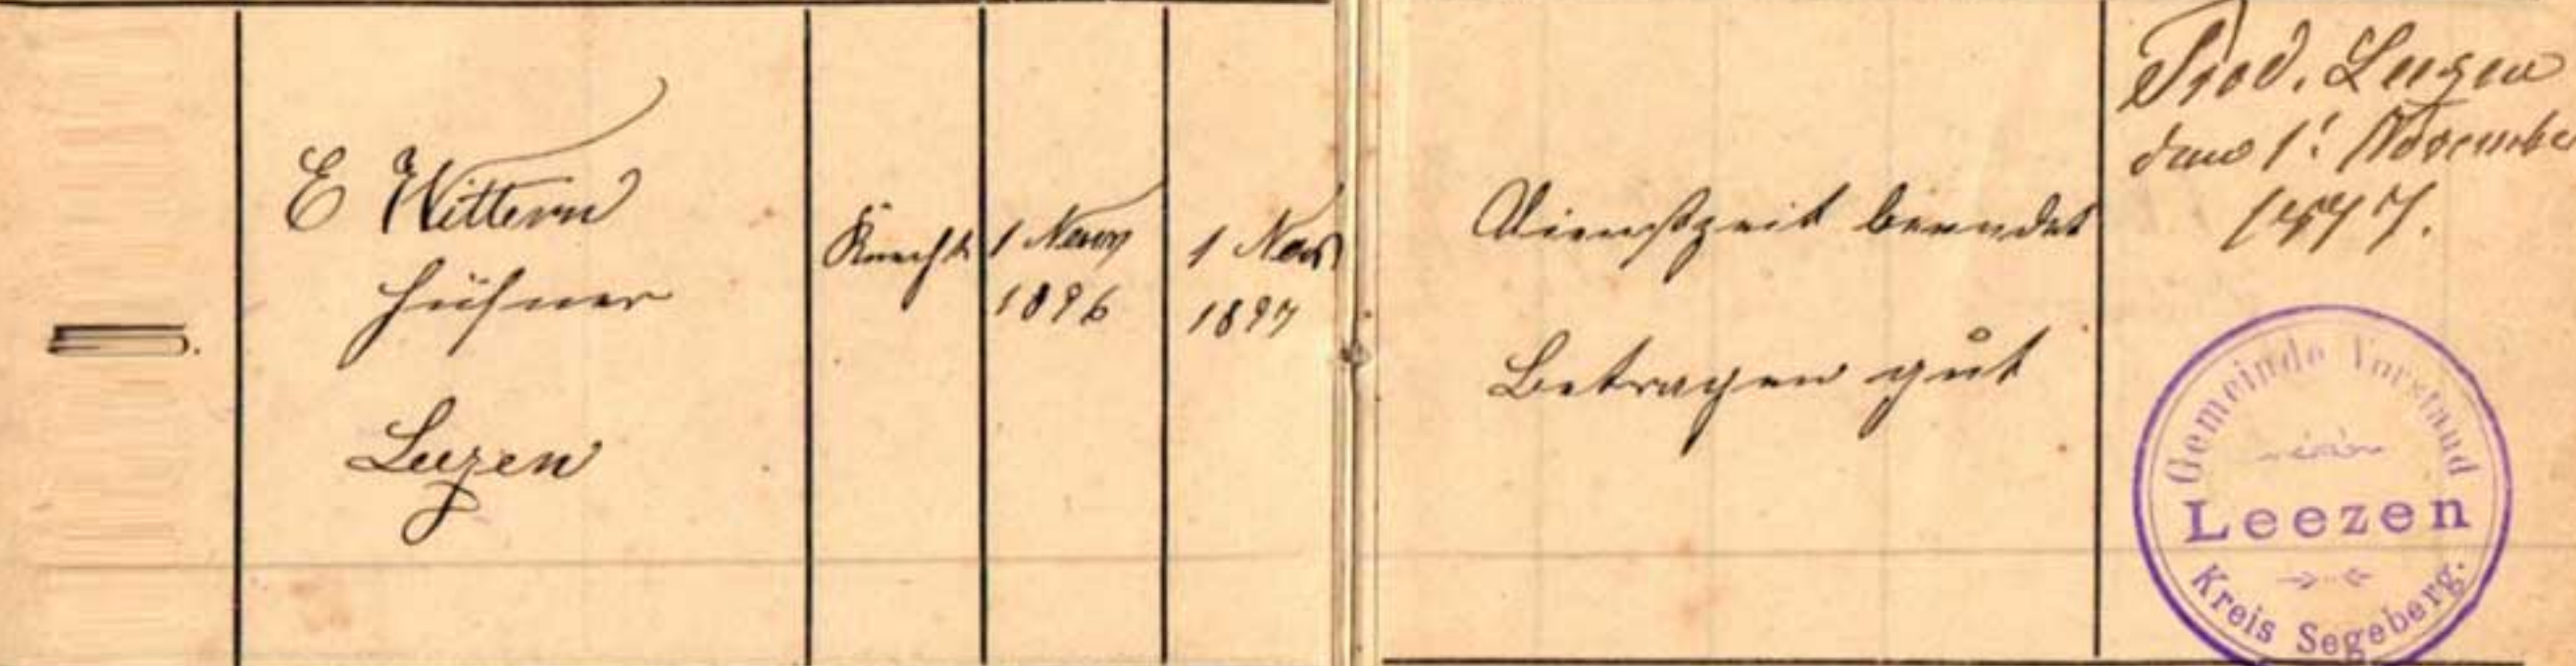 E Wittern
Hüfner
Leezen
Knecht
1 Novbr
1896
1 Nov
1897
Dienstzeit beendet
Betragen gut
Prod. Leezen
den 1. November
1897.
Gemeinde Vorstand
Leezen
Kreis Segeberg.